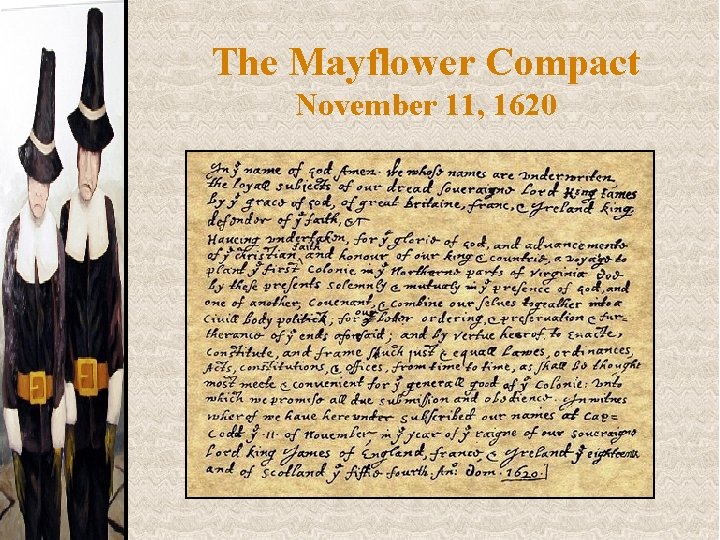 The Mayflower Compact
November 11, 1620
In yͤ name of God Amen. We whose names are underwriten,
the loyall subjects of our dread soveraigne Lord King James
by yͤ grace of God, of great Britaine, franc, & Ireland king,
defender of yͤ faith, &c
Haveing undertaken, for yͤ glorie of God, and advancemente
of yͤ christian faith and honour of our king & countrie, a voyage to
plant yͤ first colonie in yͤ Northerne parts of Virginia. Doe
by these presents solemnly & mutualy in yͤ presence of God, and
one of another, covenant, & combine our selves togeather into a
civill body politick; for our better ordering, & preservation & fur-
therance of yͤ ends aforesaid; and by vertue hearof to enacte,
constitute, and frame such just & equall lawes, ordinances,
Acts, constitutions, & offices, from time to time, as shall be thought
most meete & convenient for yͤ generall good of yͤ Colonie: unto
which we promise all due submission and obedience. In witnes
wherof we have hereunder subscribed our names at Cap=
Codd yͤ .11. of November, in yͤ year of yͤ raigne of our soveraigne
Lord king James of England, france & Ireland yͤ eighteenth
and of Scotland yͤ fiftie fourth. Ano: Dom. 1620.